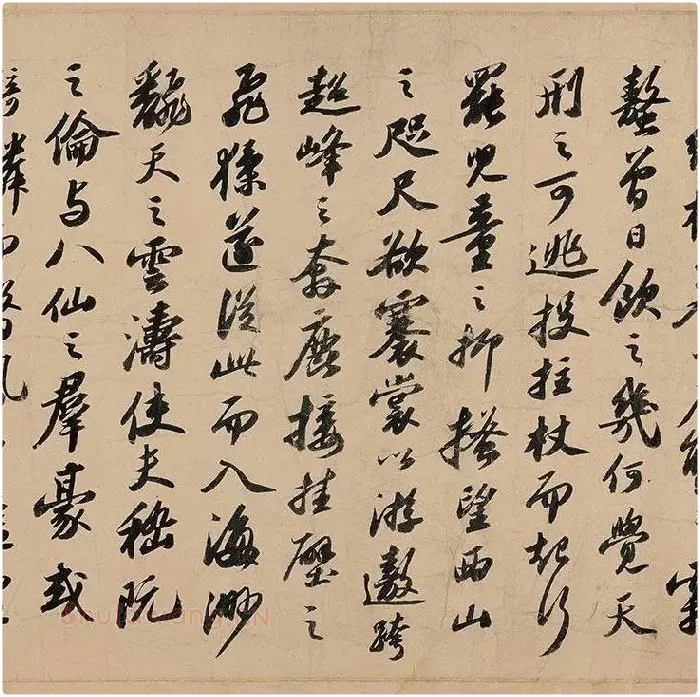 螯曾日飲之幾何覺天
刑之可逃投拄杖而起行
罷兒童之抑搔望西山
之咫尺欲褰裳以游遨跨
超峰之奔鹿接挂壁之
飛猱遂從此而入海渺
翻天之雲濤使夫嵇阮
之倫与八仙之羣豪或